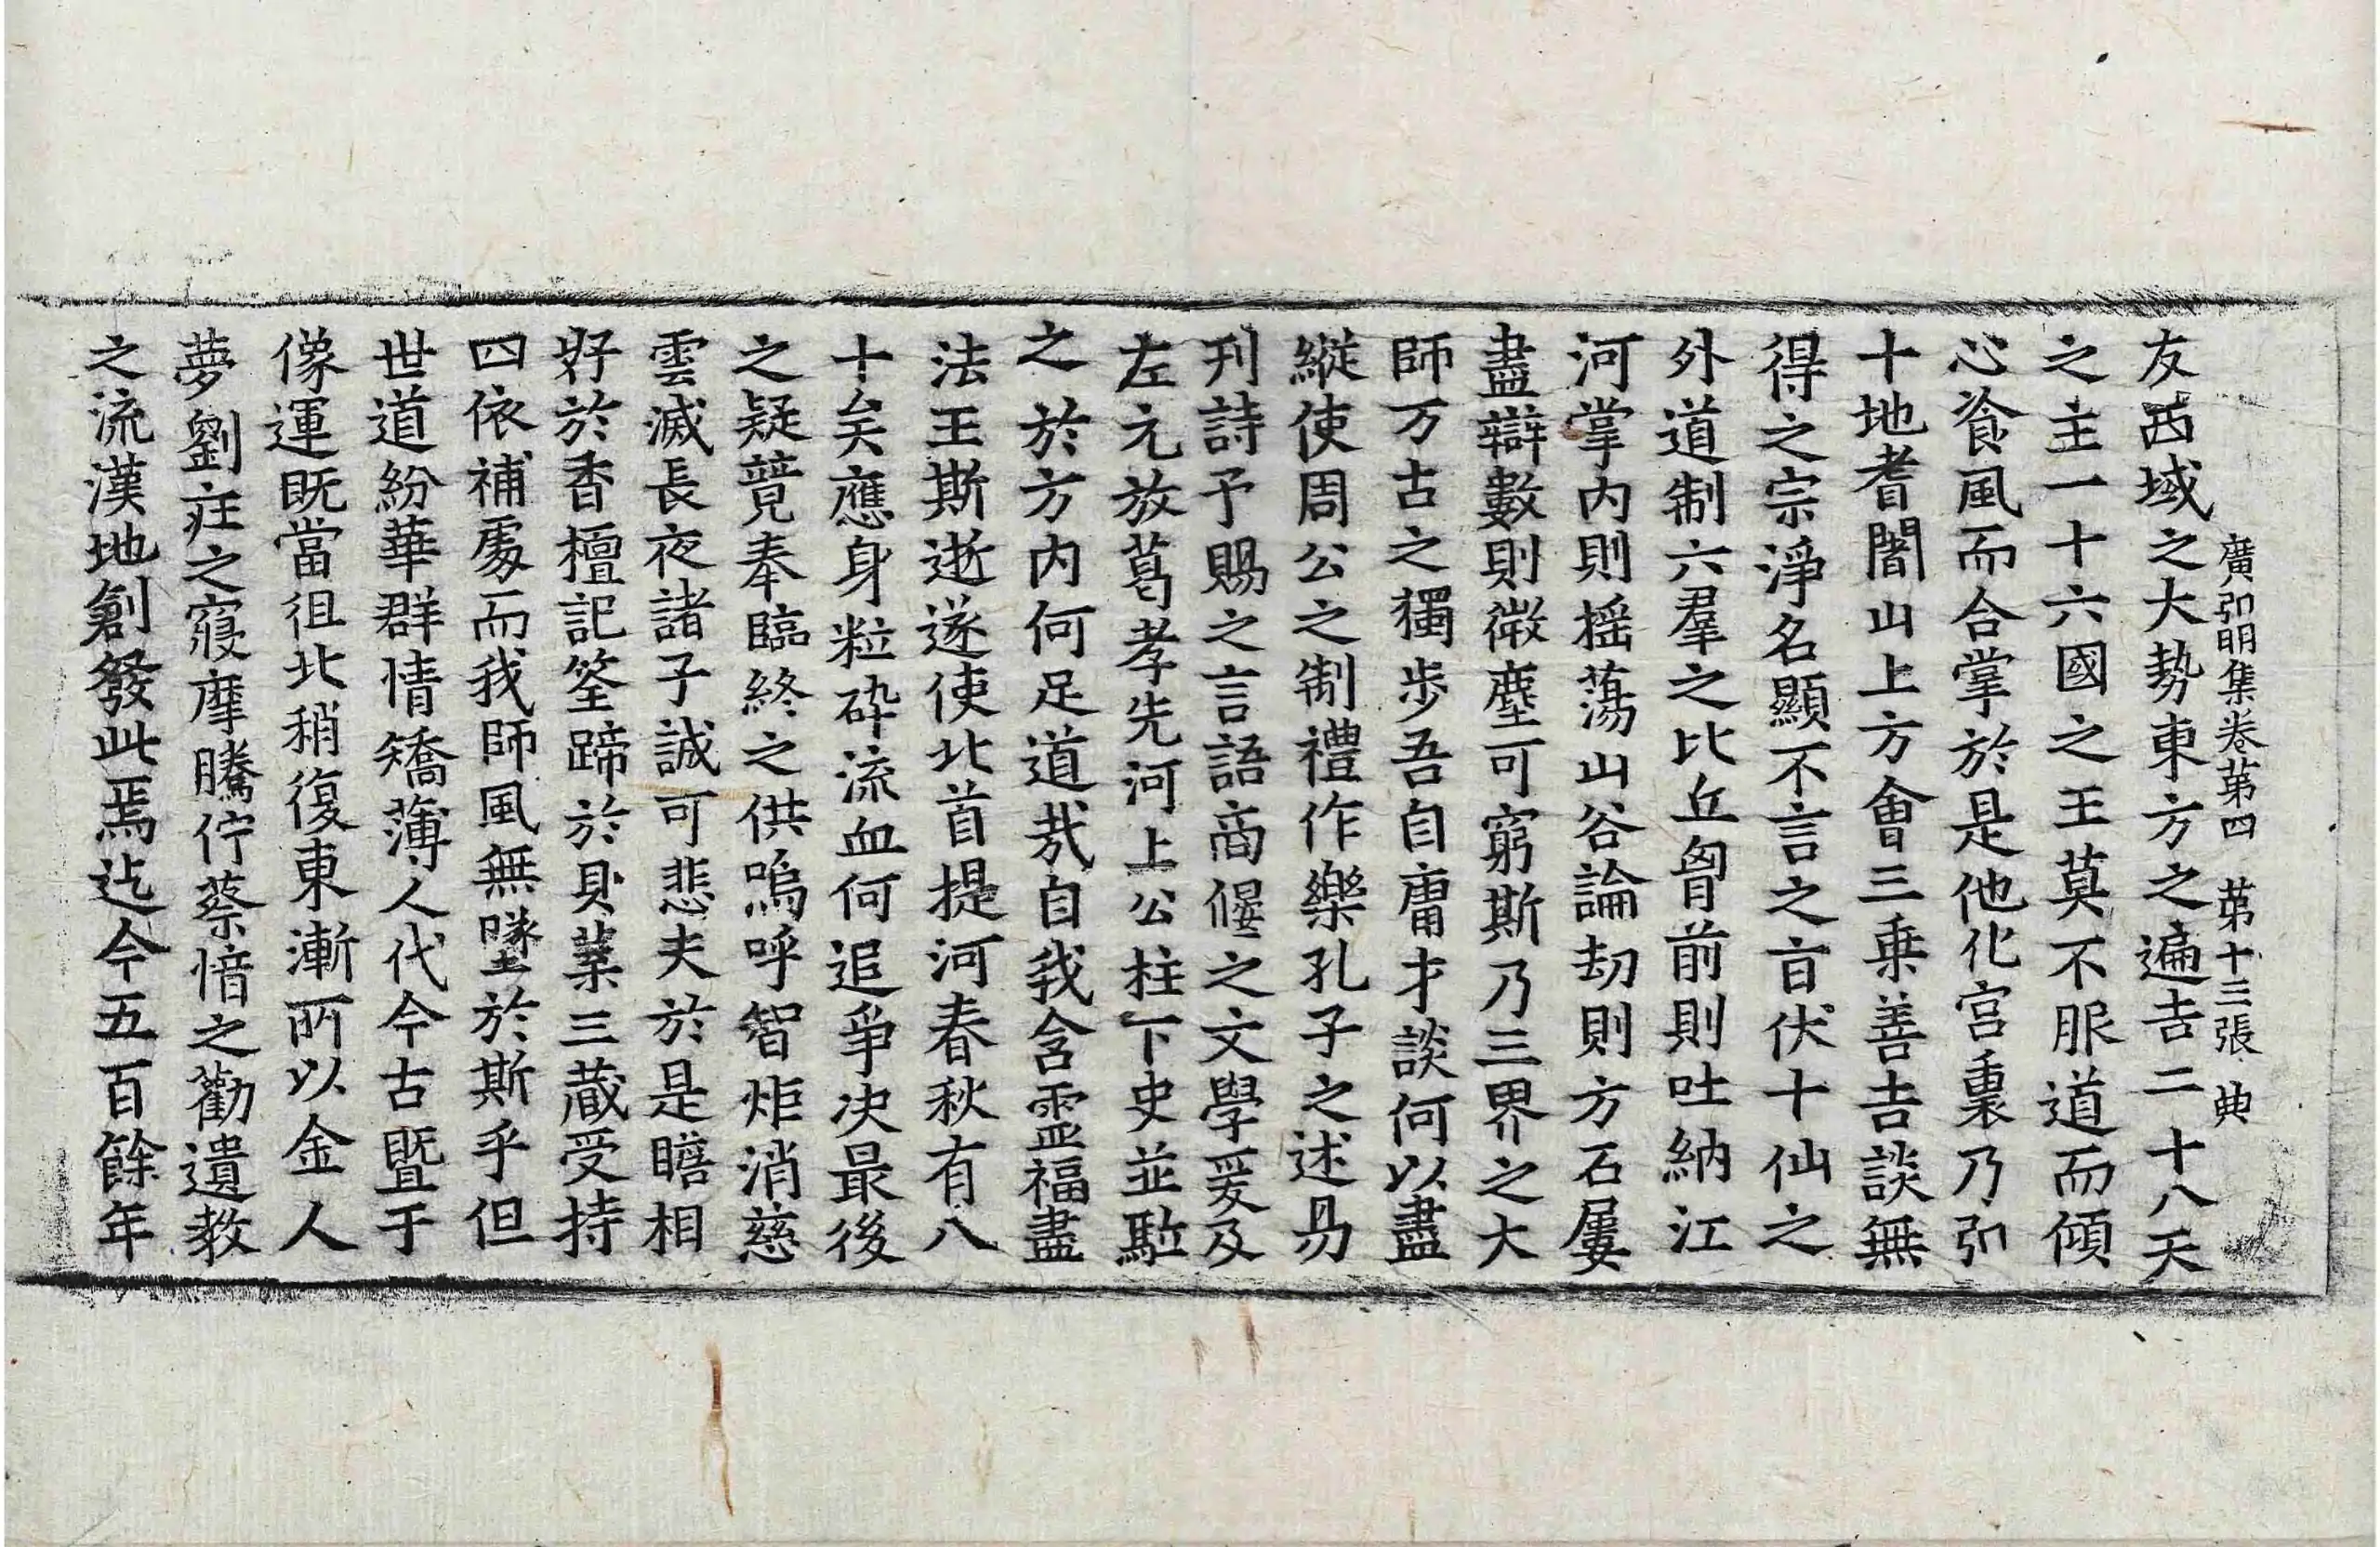 廣弘明集卷第四　第十三張　典
友西域之大勢東方之遍吉二十八天
之主一十六國之王莫不服道而傾
心飡風而合掌於是他化宮裏乃弘
十地耆闍山上方會三乗善吉談無
得之宗淨名顯不言之旨伏十仙之
外道制六羣之比丘胷前則吐納江
河掌内則揺蕩山谷論劫則方石屢
盡辯數則微塵可窮斯乃三界之大
師万古之獨步吾自庸才談何以盡
縱使周公之制禮作樂孔子之述易
刊詩予賜之言語商偃之文學爰及
左元放葛孝先河上公柱下史並驅
之於方内何足道哉自我含靈福盡
法王斯逝遂使北首提河春秋有八
十矣應身粒碎流血何追爭决最後
之疑競奉臨終之供嗚呼智炬消慈
雲滅長夜諸子誠可悲夫於是瞻相
好於香檀記筌蹄於貝葉三藏受持
四依補處而我師風無墜於斯乎但
世道紛華群情矯薄人代今古暨于
像運旣當徂北稍復東漸所以金人
夢劉莊之寢摩騰佇蔡愔之勸遺教
之流漢地創發此焉迄今五百餘年